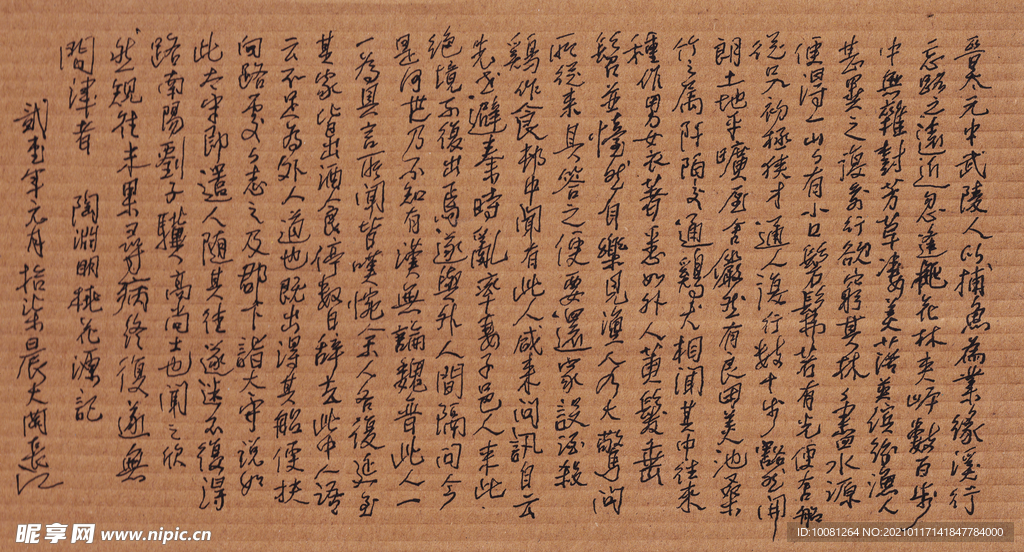 晉太元中武陵人以捕魚為業緣溪行
忘路之遠近忽逢桃花林夾岸數百步
中無雜封芳草凄美落英缤纷漁人
甚異之復前行欲窮其林林盡水源
便得一山山有小口髣髴若有光便舍船
從口入初極狹才通人復行數十步豁然開
朗土地平曠屋舍儼然有良田美池桑
竹之属阡陌交通鷄犬相聞其中往來
種作男女衣著悉如外人黄髮垂
髫並怡然自樂見漁人乃大驚問
所從来具答之便要還家設酒殺
鷄作食邨中聞有此人咸来问訊自云
先世避秦時亂率妻子邑人来此
绝境不復出焉遂與外人間隔问今
是何世乃不知有漢無論魏晉此人一
一為具言所聞皆嘆惋余人各復延至
其家皆出酒食停數日辭去此中人語
云不足為外人道也既出得其船便扶
向路處處志之及郡下詣太守说如
此太守即遣人随其往遂迷不復得
路南陽劉子驥高尚士也聞之欣
然规往未果尋病终復遂無
問津者 陶淵明桃花源記
貳 年元月拾柒日晨大 長江
昵享网 www.nipic.cn
ID:10081264 NO:20210117141847784000